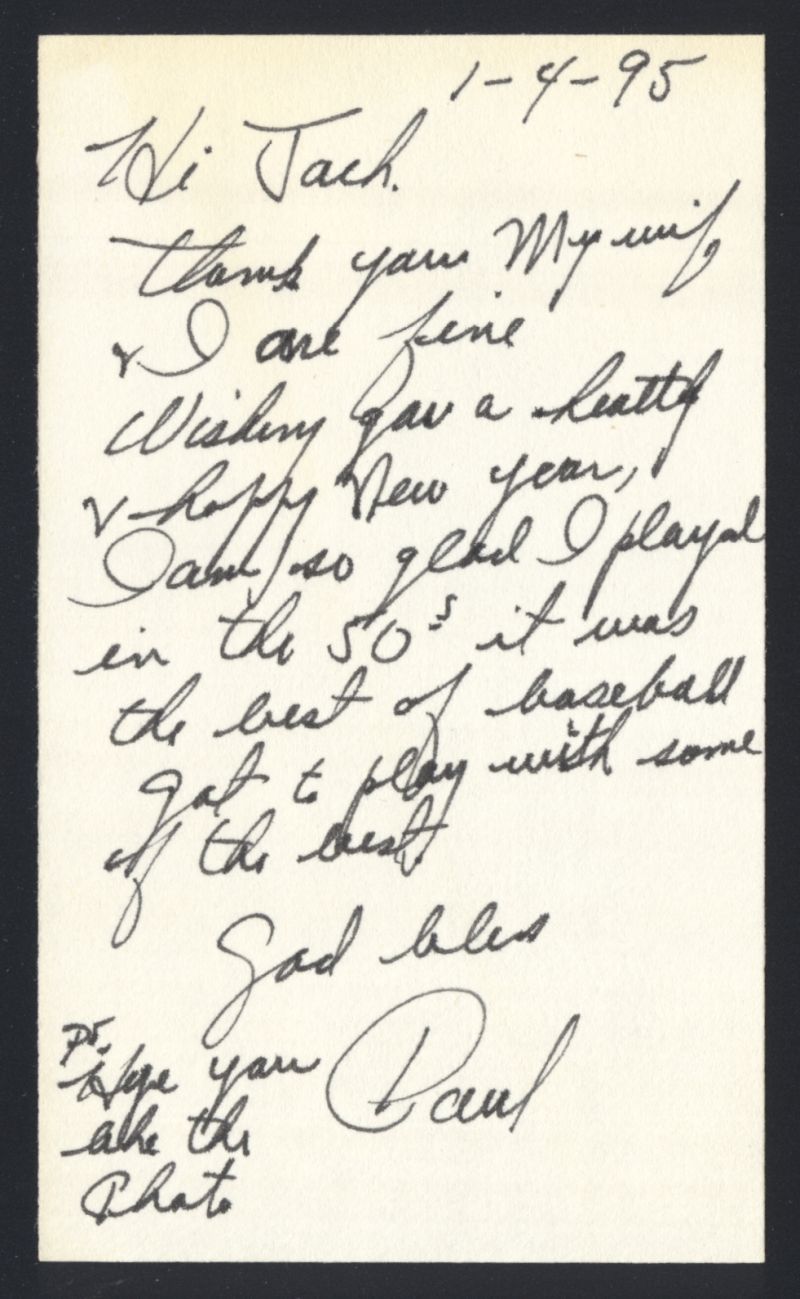 1-4-95
Hi Jack.
thank you My wife
& I are fine
Wishing you a healthy
& happy New year,
I am so glad I played
in the 50s it was
the best of baseball
got to play with some
of the best
God bless
Paul
PS.
Hope you
like the
Photo